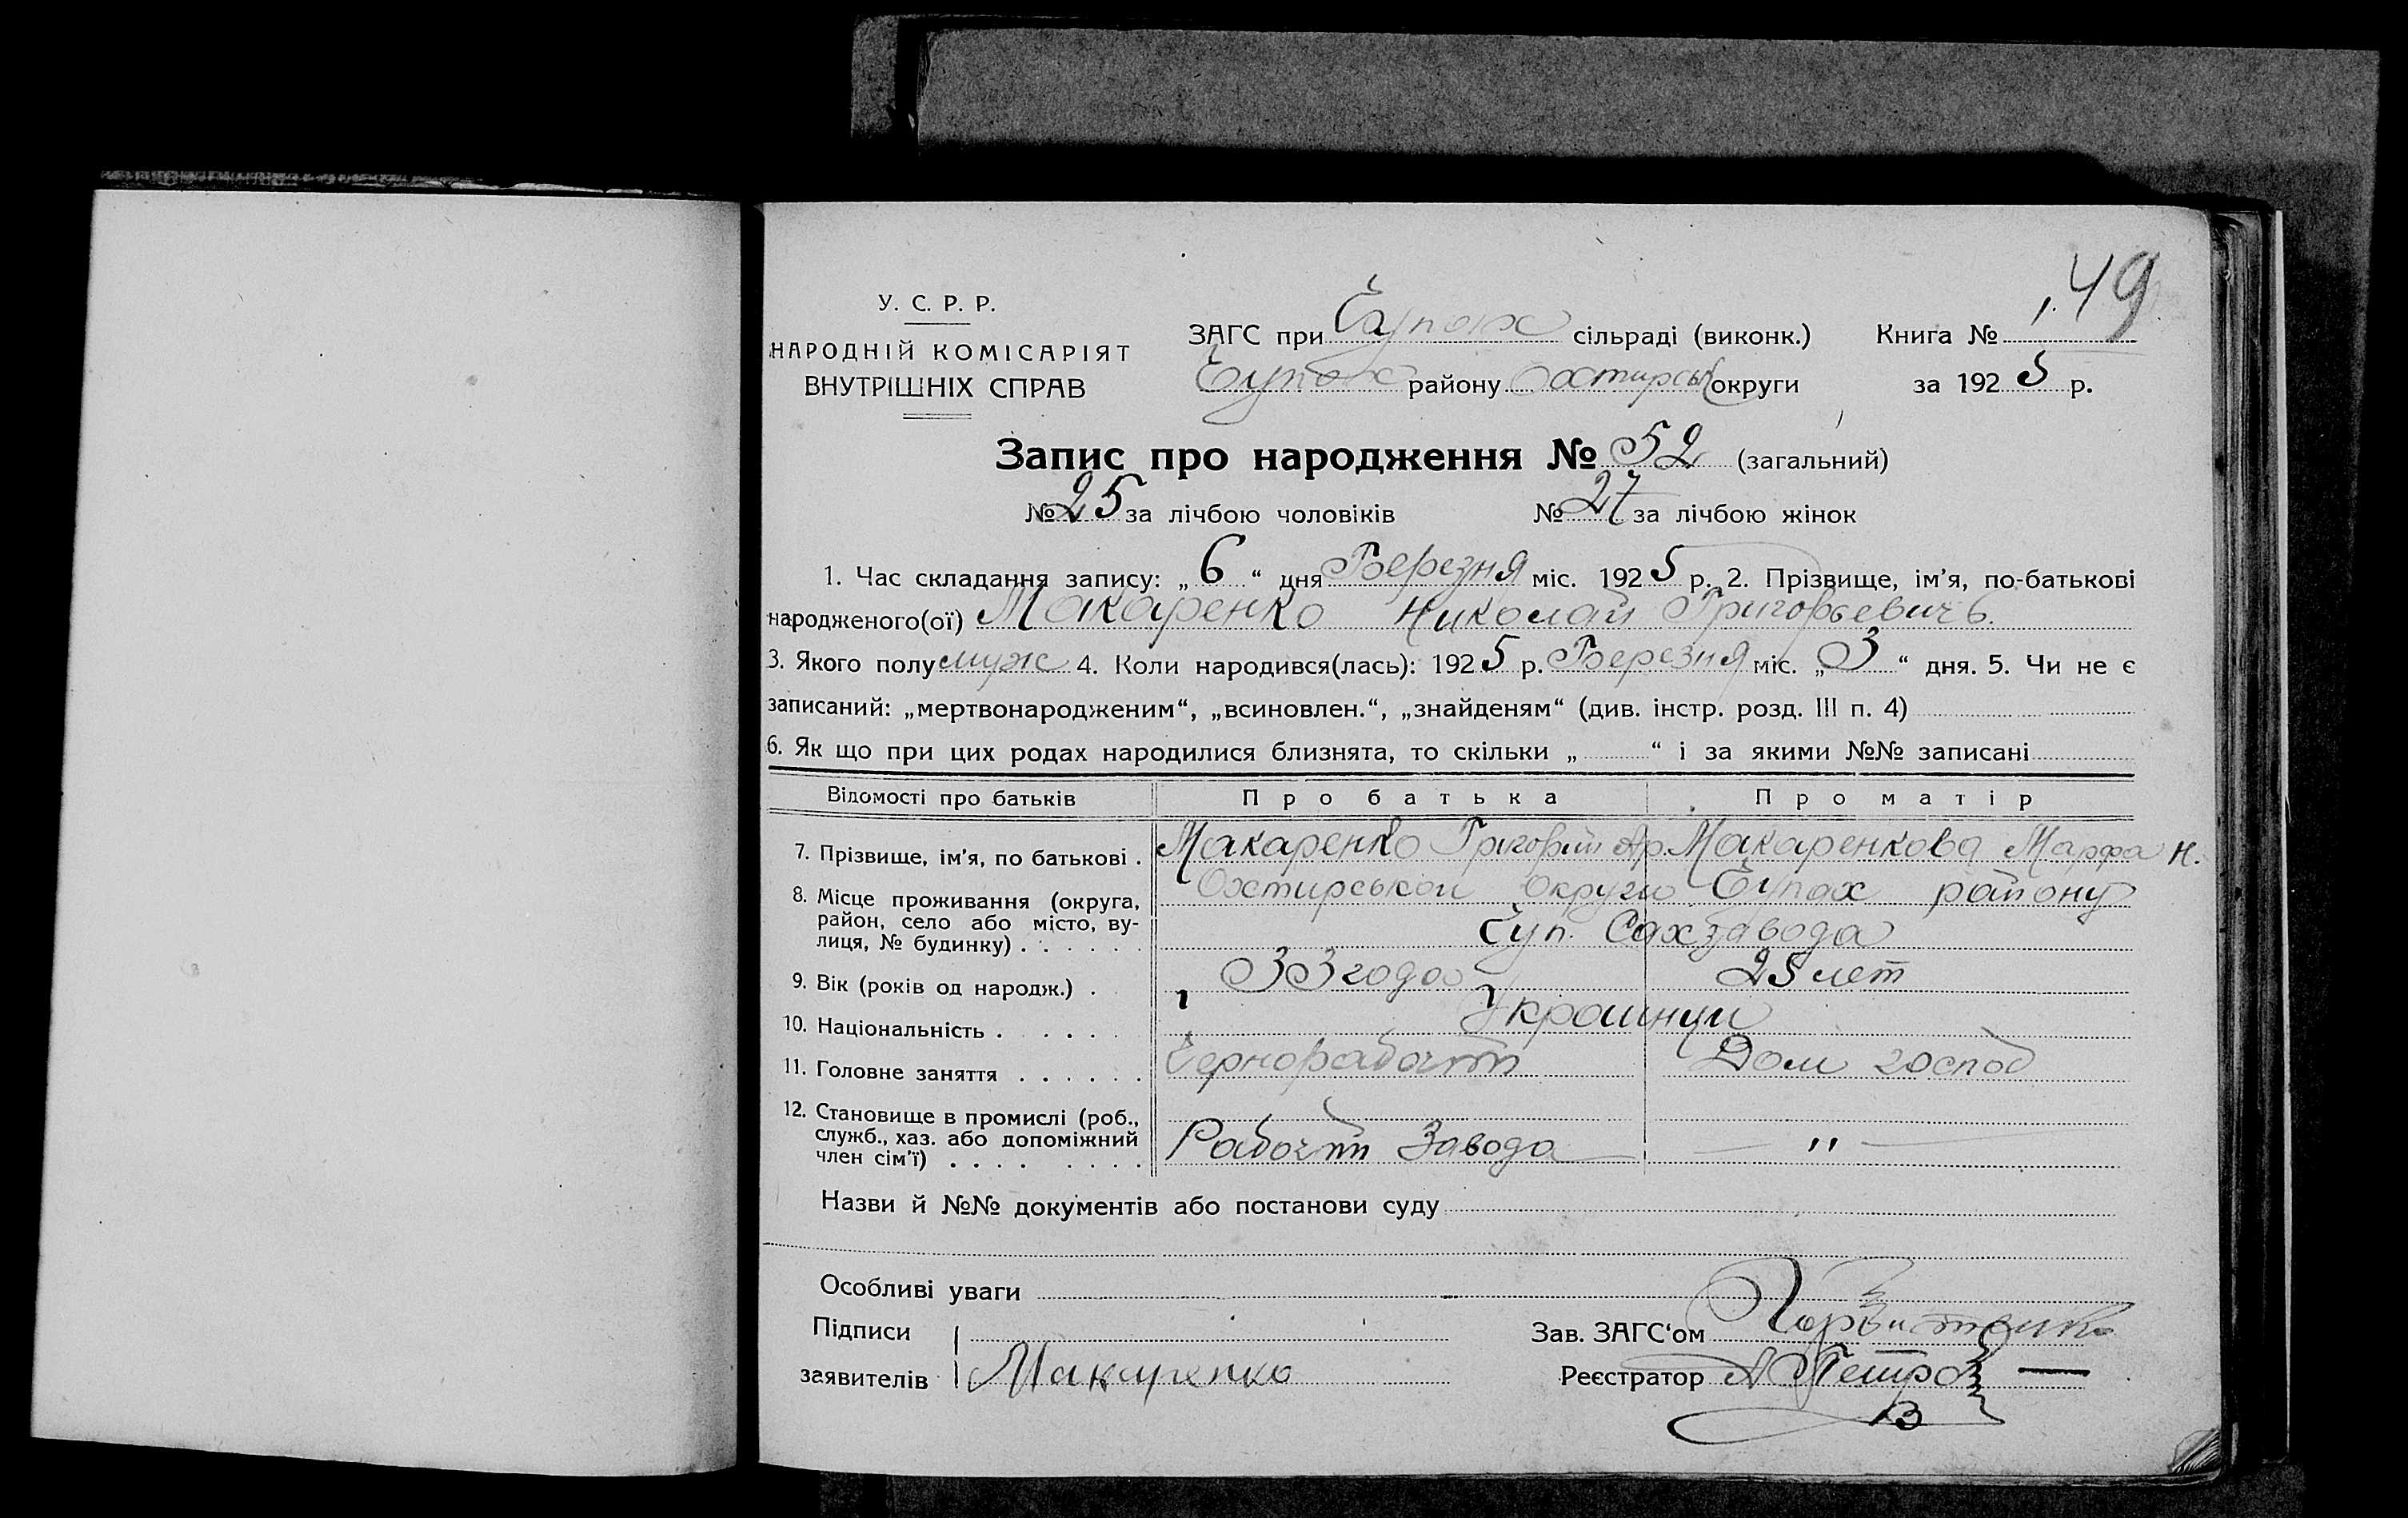 149
У. С. Р. Р.
НАРОДНІЙ КОМІСАРІЯТ
ВНУТРІШНІХ СПРАВ
ЗАГС при Чупах сільраді (виконк.) Книга №
Чупах району Охтирськ округи за 1925 р.
Запис про народження № 52 (загальний)
№ 25 за лічбою чоловіків № 27 за лічбою жінок
1. Час складання запису: „6“ дня Березня міс. 1925 р. 2. Прізвище, ім'я, по-батькові
народженого(ої) Макаренко Николай Григорьевичь.
3. Якого полу муж 4. Коли народився(лась): 1925 р. Березня міс. „3“ дня. 5. Чи не є
записаний: „мертвонародженим“, „всиновлен.“, „знайденям“ (див. інстр. розд. III п. 4)
6. Як що при цих родах народилися близнята, то скільки „ “ і за якими №№ записані
Відомості про батьків Про батька Про матір
7. Прізвище, ім'я, по батькові . Макаренко Григорий Ар. Макаренкова Марфа Н.
8. Місце проживання (округа, Охтирськои округи Чупах району
район, село або місто, ву-
лиця, № будинку) . . . . . . Чуп. Сахзавода
9. Вік (років од народж.) . 33 года 25 лет
10. Національність . . . . . Украинци
11. Головне заняття . . . . . . Чернорабочий Дом господ
12. Становище в промислі (роб.,
служб., хаз. або допоміжний
член сім'ї) . . . . . . . . Рабочий Завода — " —
Назви й №№ документів або постанови суду
Особливі уваги
Підписи
Зав. ЗАГС‘ом
заявителів Макаренко Реєстратор А Петров